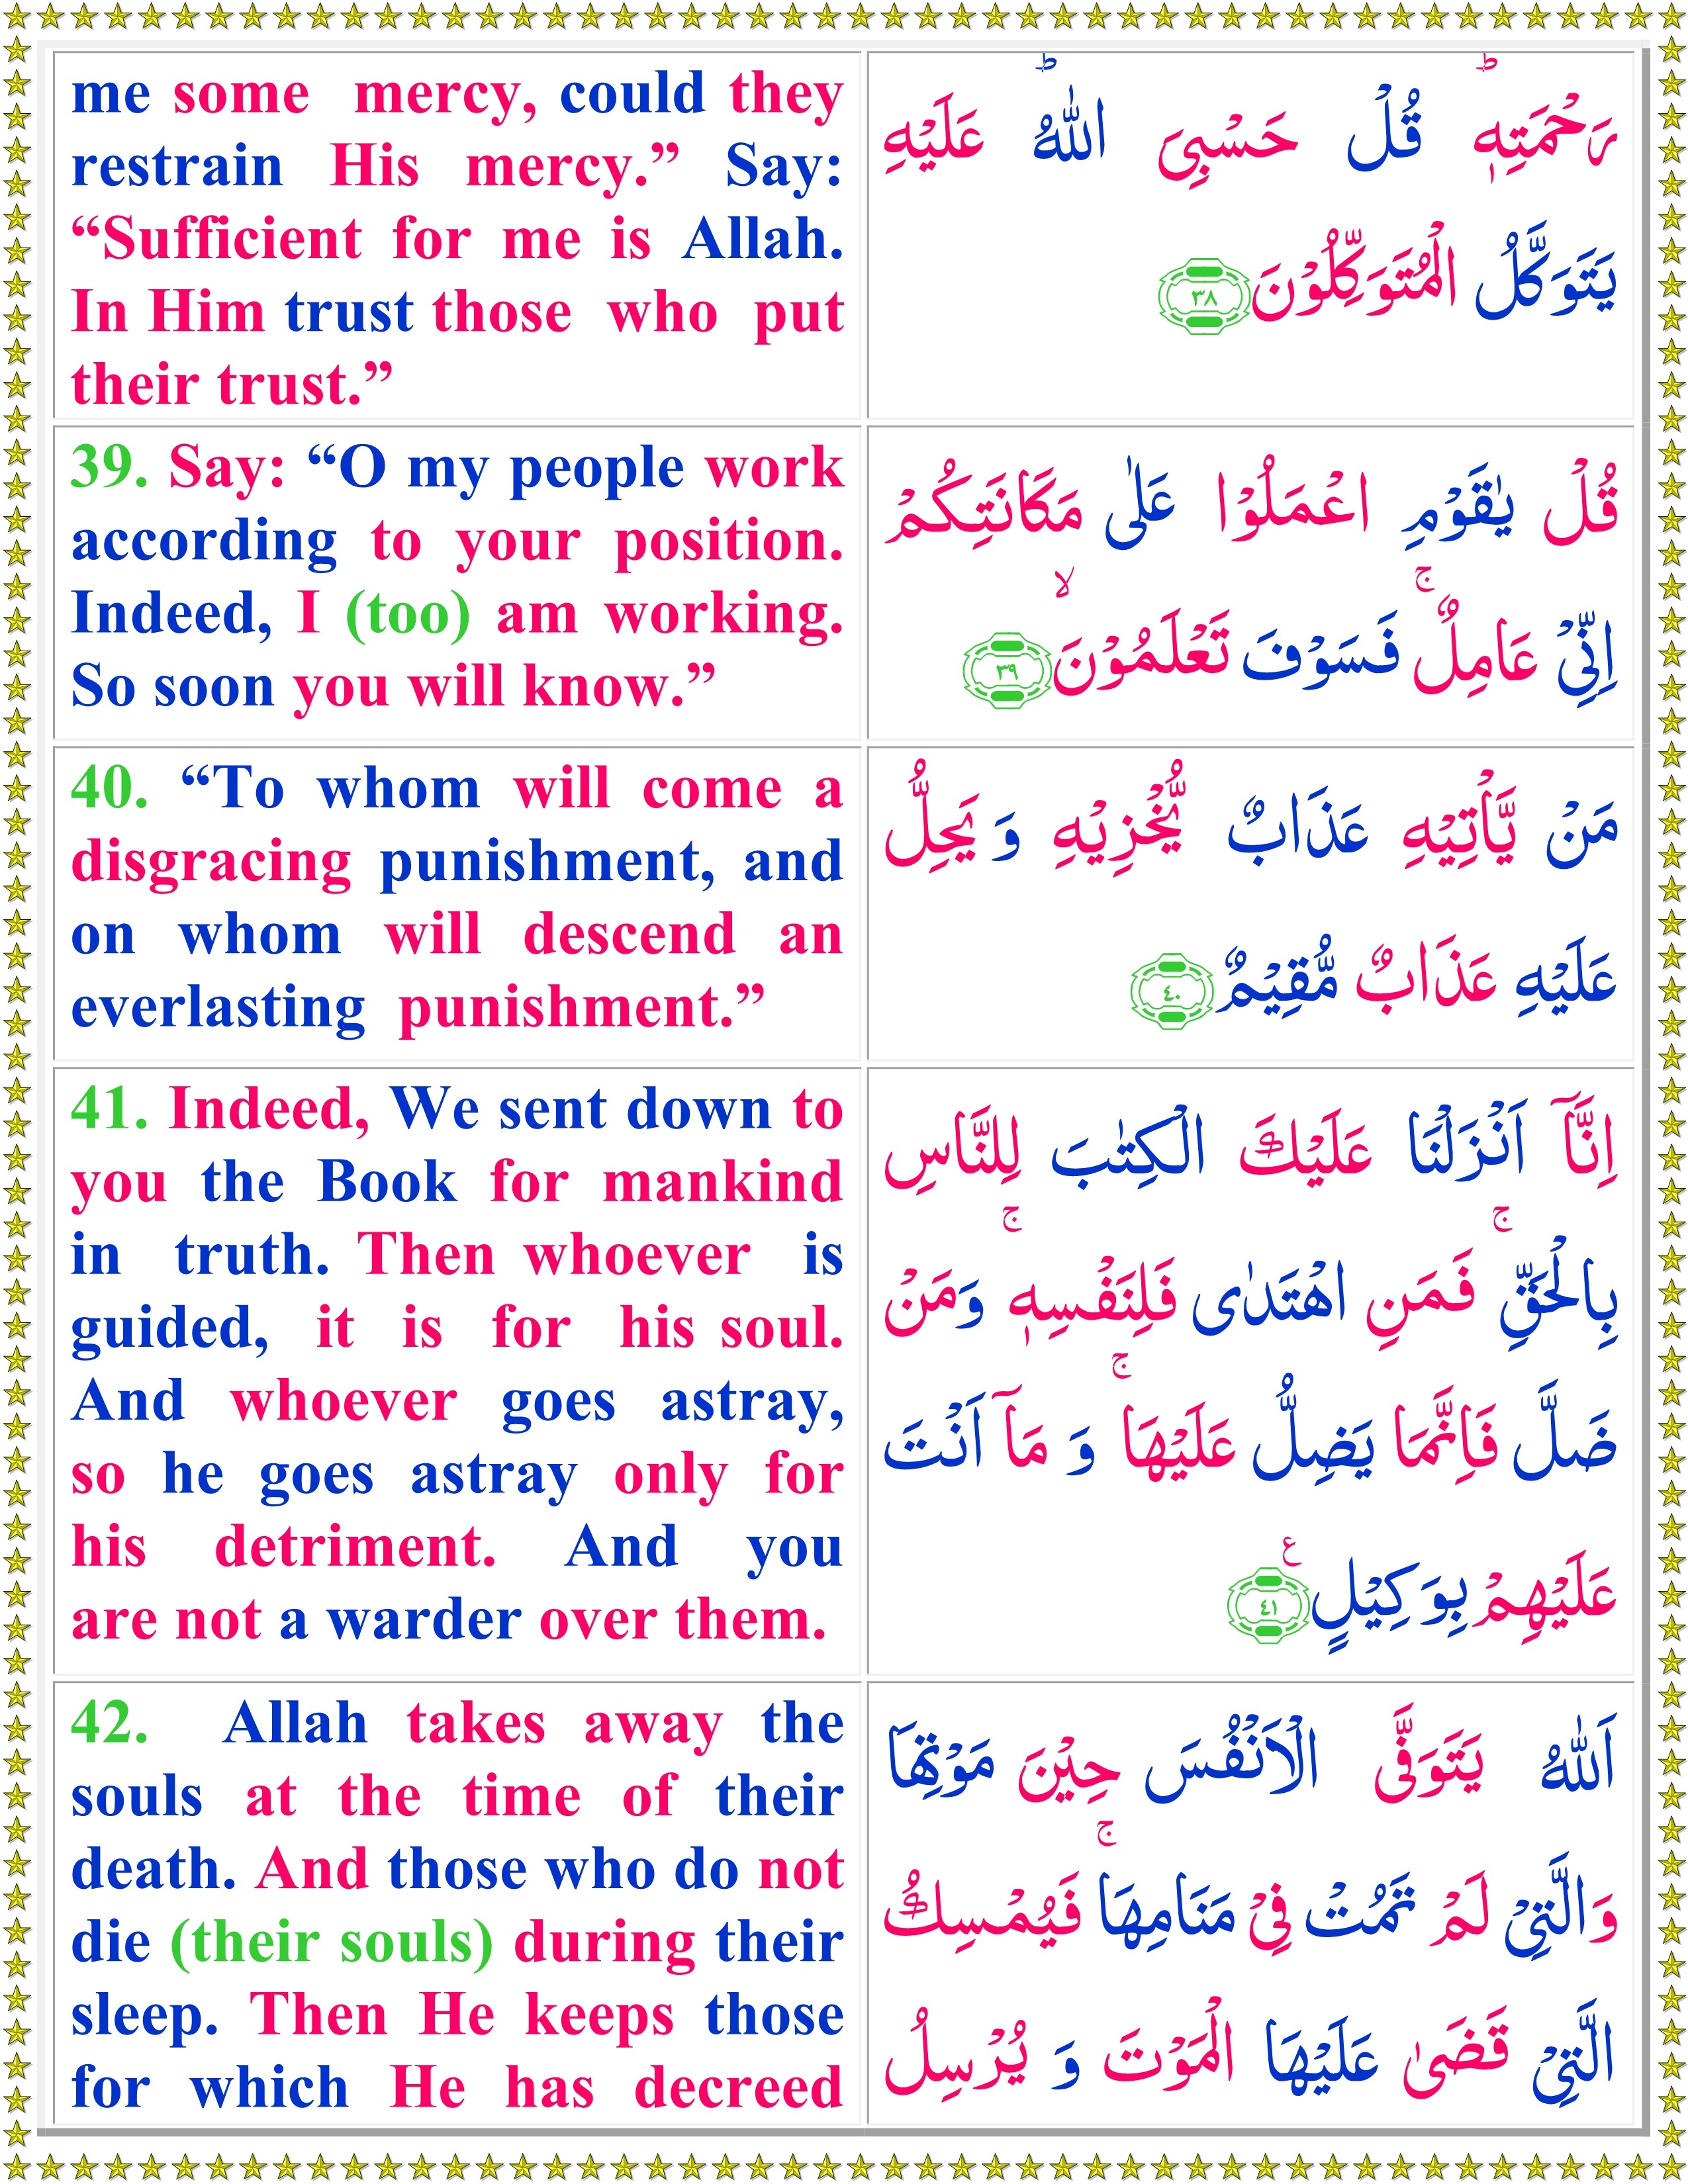 me some mercy, could they
restrain His mercy.” Say:
“Sufficient for me is Allah.
In Him trust those who put
their trust.”
رَحْمَتِهٖ ؕ قُلْ حَسْبِیَ اللّٰهُ ؕ عَلَیْهِ
یَتَوَكَّلُ الْمُتَوَكِّلُوْنَ ﴿۳۸﴾
39. Say: “O my people work
according to your position.
Indeed, I (too) am working.
So soon you will know.”
قُلْ یٰقَوْمِ اعْمَلُوْا عَلٰی مَكَانَتِكُمْ
اِنِّیْ عَامِلٌ ۚ فَسَوْفَ تَعْلَمُوْنَ ۙ ﴿۳۹﴾
40. “To whom will come a
disgracing punishment, and
on whom will descend an
everlasting punishment.”
مَنْ یَّاْتِیْهِ عَذَابٌ یُّخْزِیْهِ وَ یَحِلُّ
عَلَیْهِ عَذَابٌ مُّقِیْمٌ ﴿٤٠﴾
41. Indeed, We sent down to
you the Book for mankind
in truth. Then whoever is
guided, it is for his soul.
And whoever goes astray,
so he goes astray only for
his detriment. And you
are not a warder over them.
اِنَّاۤ اَنْزَلْنَا عَلَیْكَ الْكِتٰبَ لِلنَّاسِ
بِالْحَقِّ ۚ فَمَنِ اهْتَدٰی فَلِنَفْسِهٖ ۚ وَمَنْ
ضَلَّ فَاِنَّمَا یَضِلُّ عَلَیْهَا ۚ وَ مَاۤ اَنْتَ
عَلَیْهِمْ بِوَكِیْلٍ ﴿٤١﴾ ع
42. Allah takes away the
souls at the time of their
death. And those who do not
die (their souls) during their
sleep. Then He keeps those
for which He has decreed
اَللّٰهُ یَتَوَفَّی الْاَنْفُسَ حِیْنَ مَوْتِهَا
وَالَّتِیْ لَمْ تَمُتْ فِیْ مَنَامِهَا ۚ فَیُمْسِكُ
الَّتِیْ قَضٰی عَلَیْهَا الْمَوْتَ وَ یُرْسِلُ